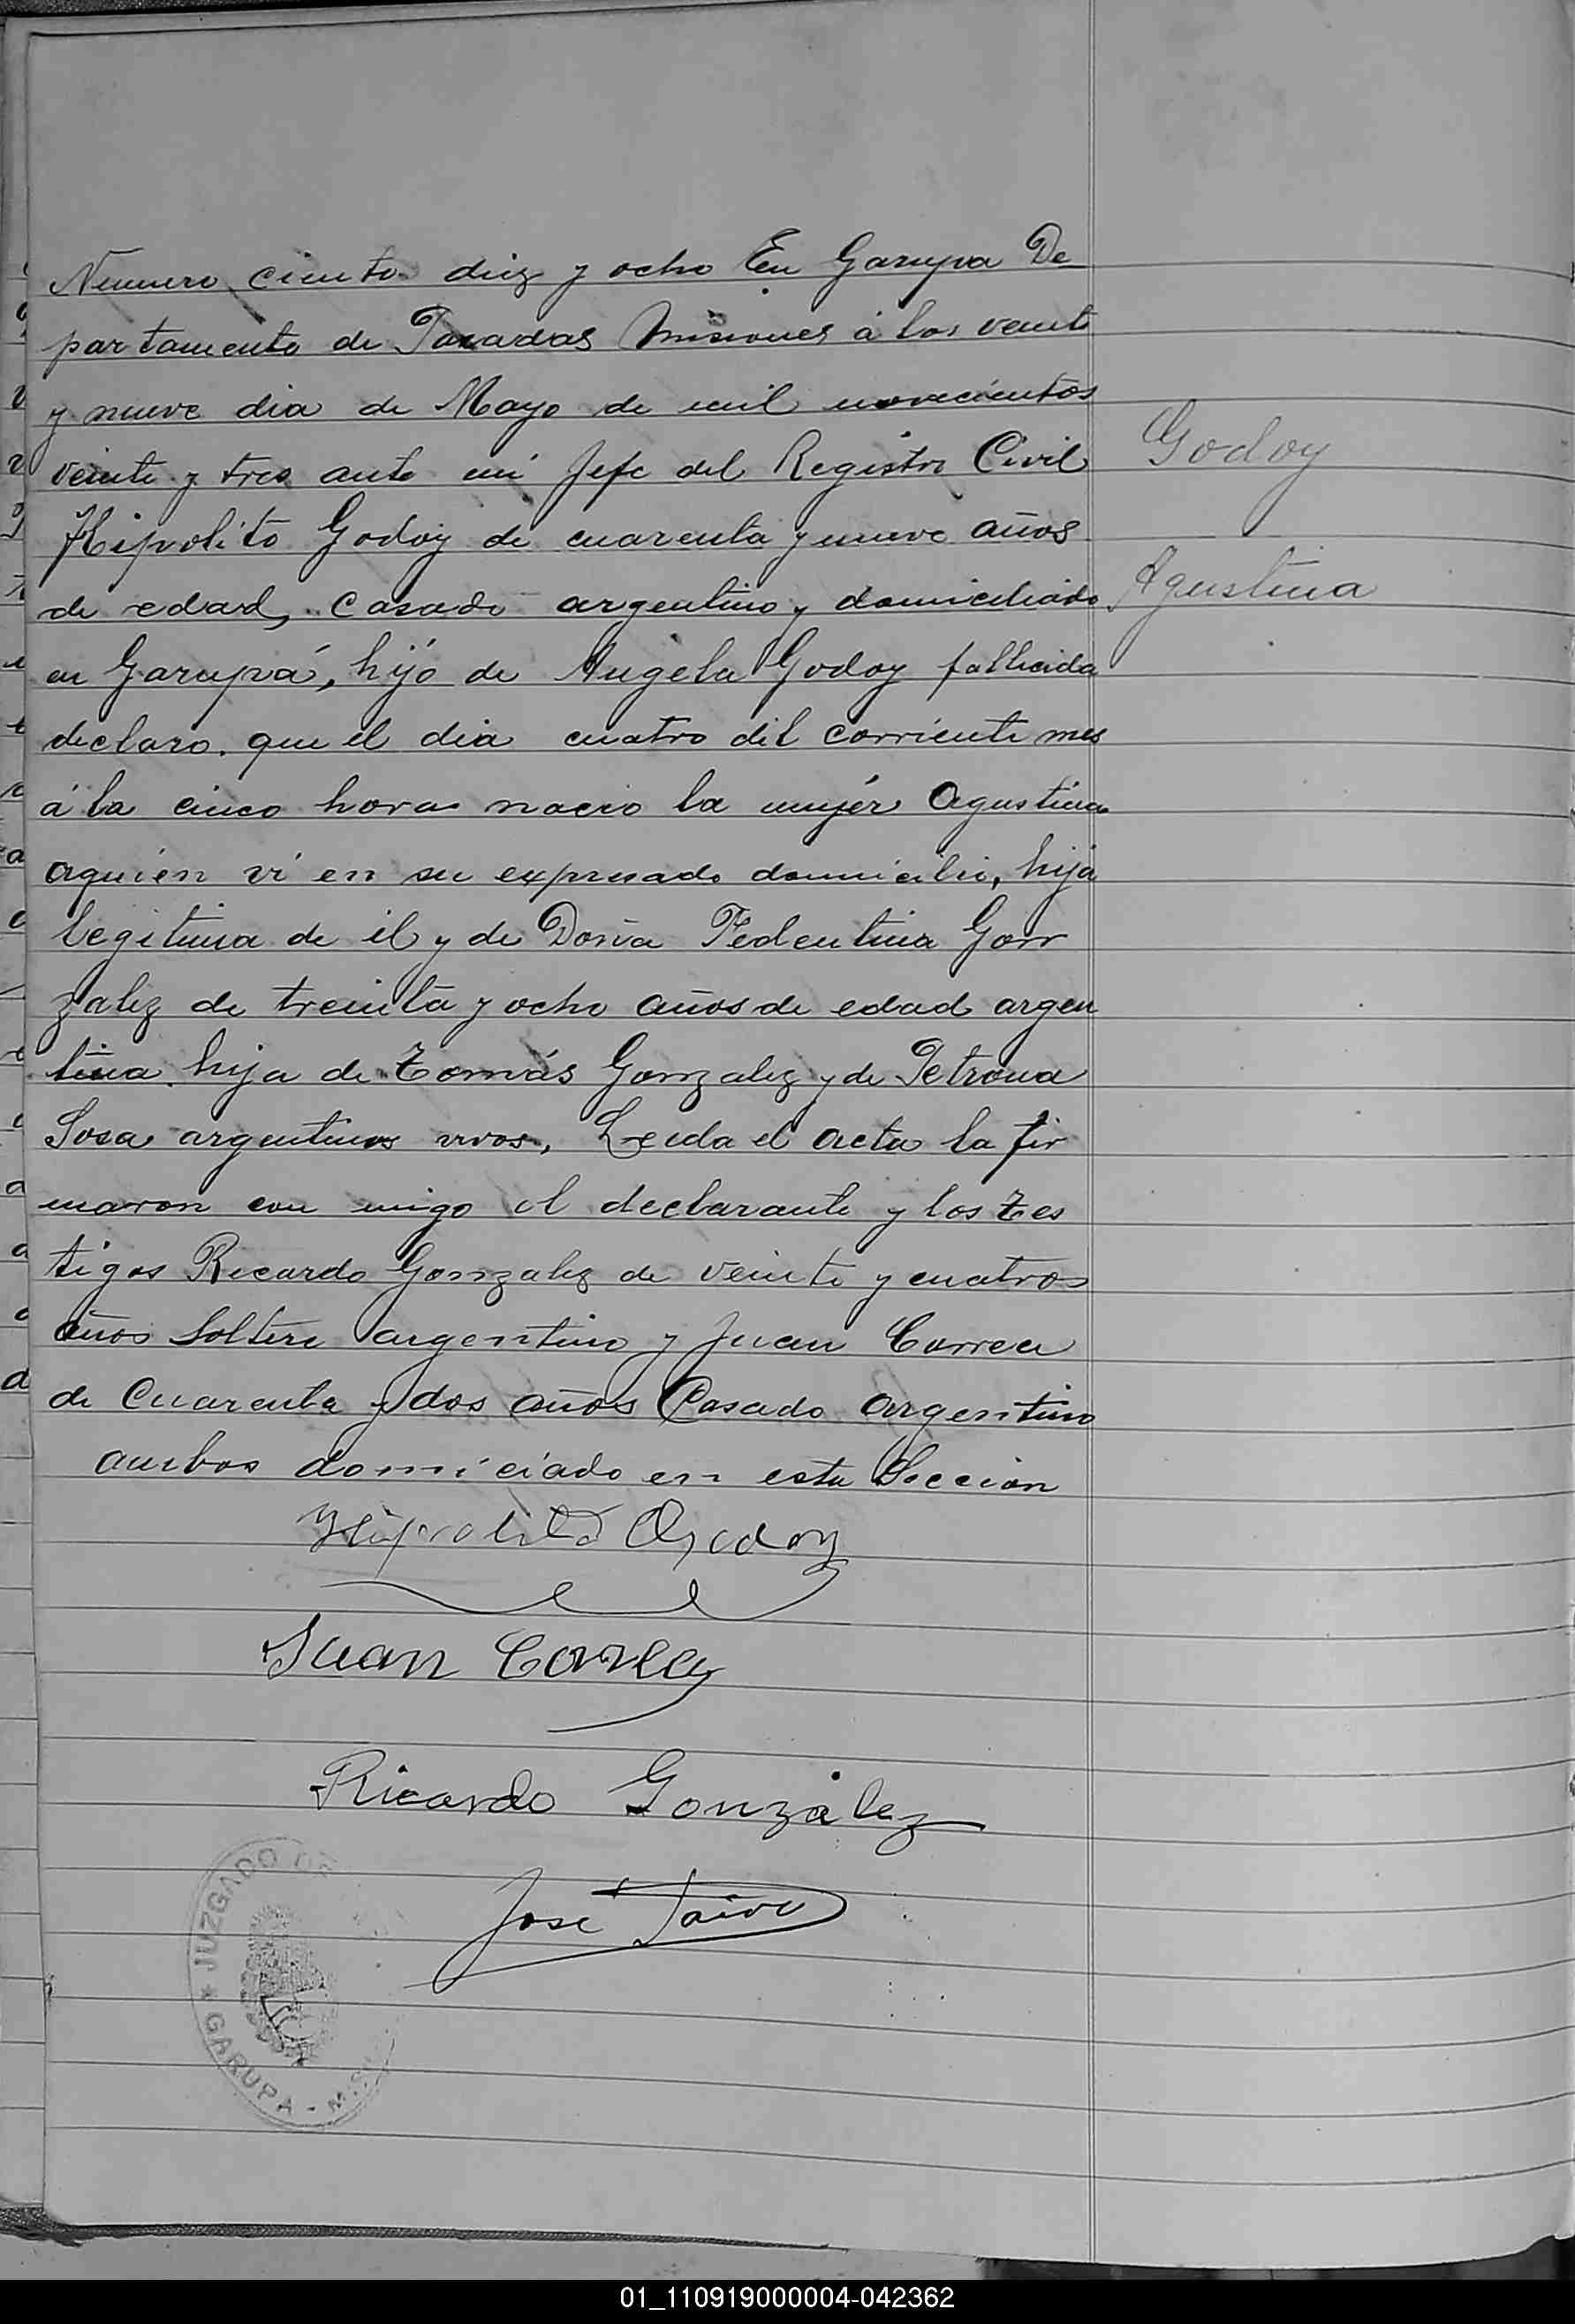 Numero ciento diez y ocho En Garupa De
partamento de Posadas Misiones á los veint
y nueve dia de Mayo de mil novecientos
veinte y tres ante mi Jefe del Registro Civil
Hipolito Godoy de cuarenta y nueve años
de edad, casado argentino y domiciliado
en Garupá, hijo de Angela Godoy fallecida
declaro. que el dia cuatro del corriente mes
á la cinco horas nacio la mujér Agustina
aquien vi en su expresado domicilio, hija
legitima de él y de Doña Fedentina Gon
zalez de treinta y ocho años de edad argen
tina. hija de Tomás Gonzalez y de Petrona
Sosa argentinos vivos, Leida el acta la fir
maron con migo el declarante y los tes
tigos Ricardo Gonzalez de veinte y cuatros
años Soltero argentino y Juan Correa
de Cuarenta y dos años Casado argentino
ambos domiciado en esta Seccion
Hipolito Godoy
Juan Correa
Ricardo González
José
Godoy
Agustina
JUZGADO DE
GARUPA - MIS
01_110919000004-042362